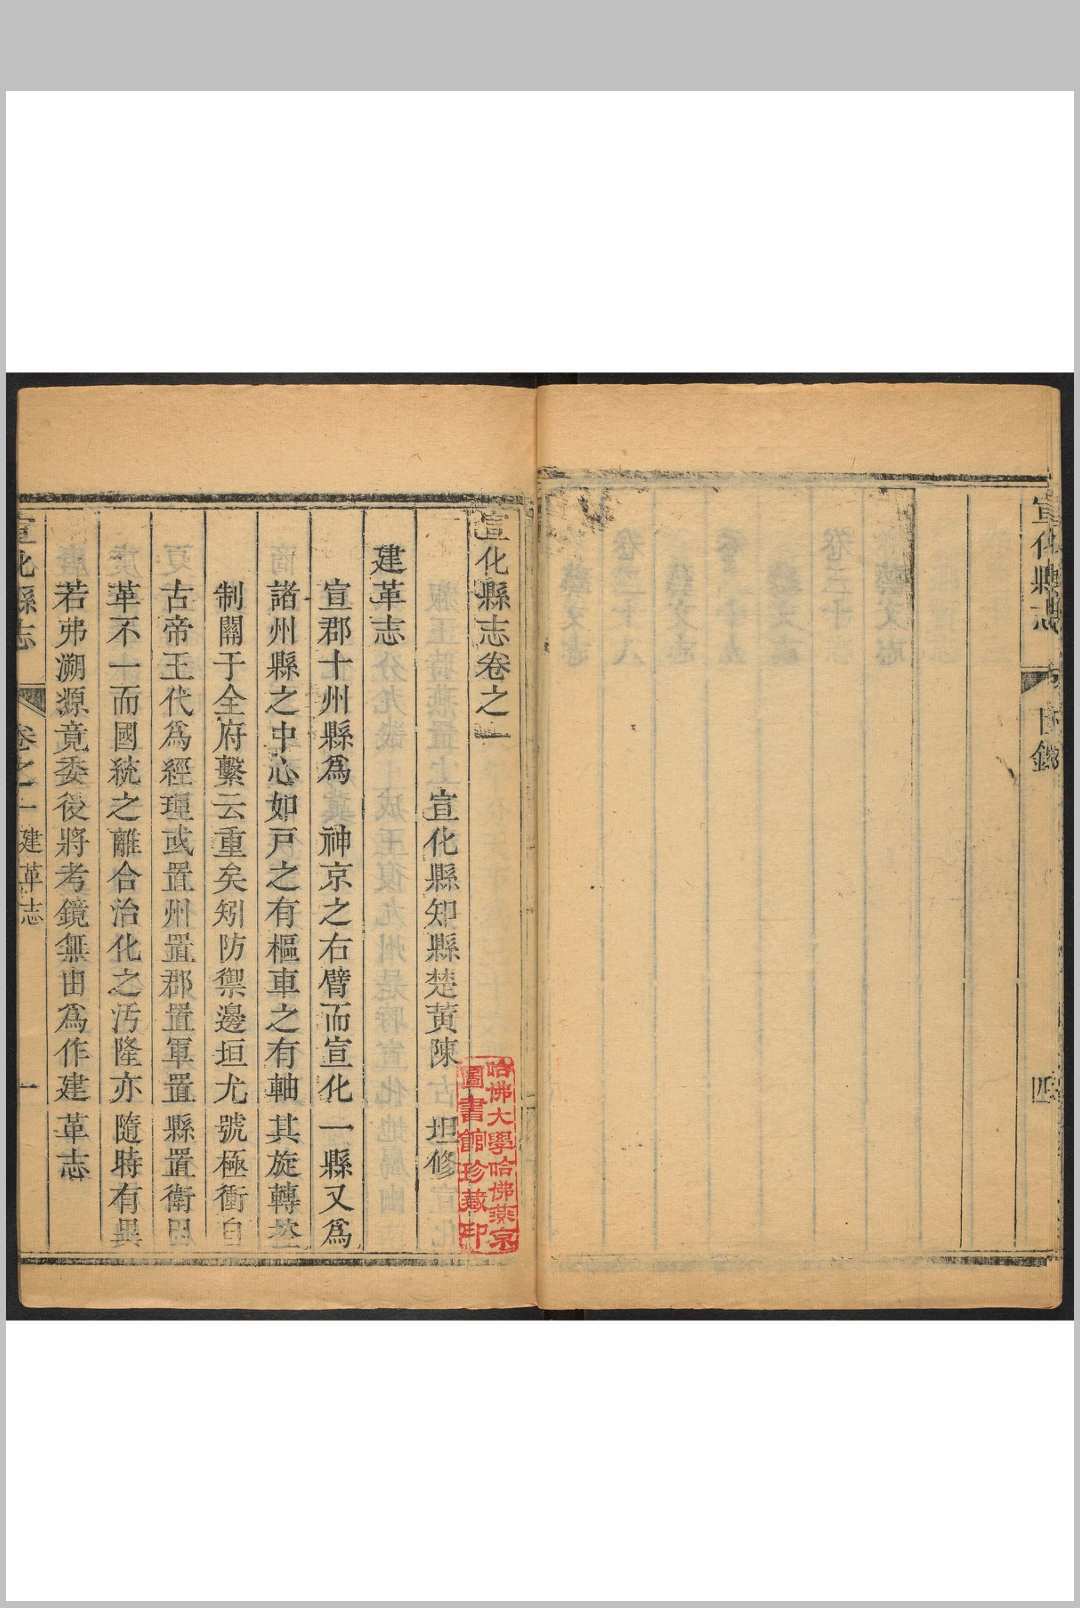 宣化縣志
目錄
四
宣化縣志卷之一
宣化縣知縣楚黃陳坦修
建革志
宣郡十州縣為神京之右臂而宣化一縣又為
諸州縣之中心如戸之有樞車之有軸其旋轉
制關于全府繫云重矣矧防禦邊垣尤號極衝自
古帝王代為經理或置州置郡置軍置縣置衛
革不一而國統之離合治化之汚隆亦隨時有異
若弗溯源竟委後將考鏡無由為作建革志
宣化縣志
卷之一
建革志
一
哈佛大學哈佛燕京
圖書館珍藏印